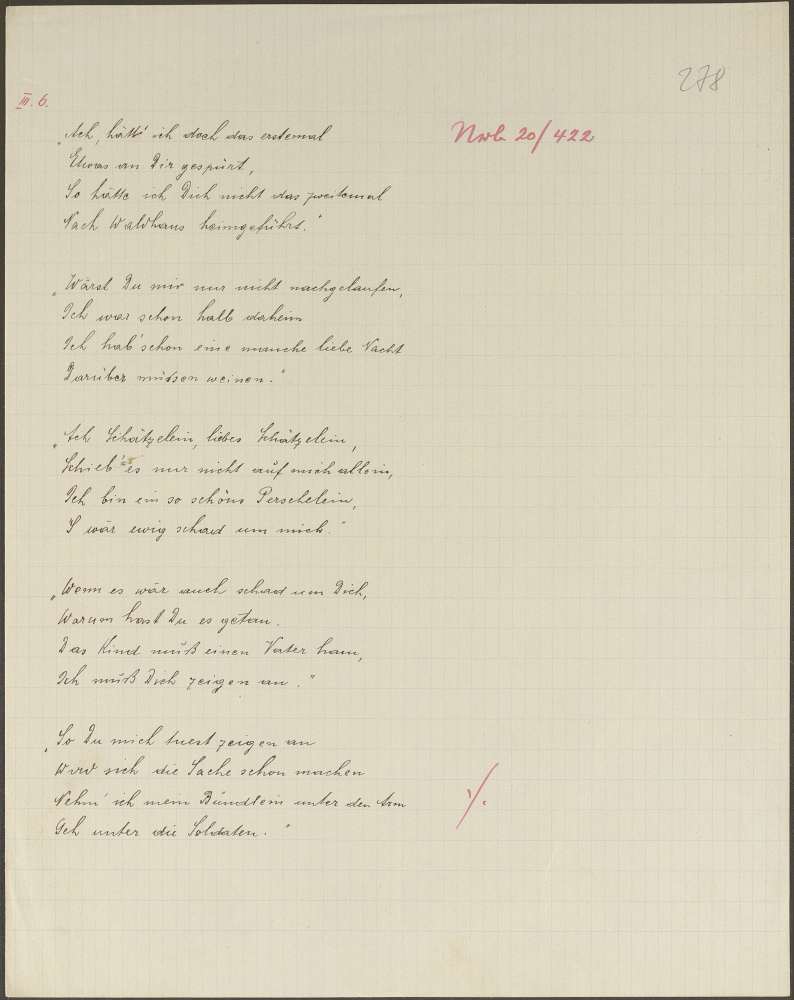 278
III. 6.
Nob 20/422
„Ach, hätt' ich doch das erstemal
Etwas an Dir gespürt,
So hätte ich Dich nicht das zweitemal
Nach Waldhaus heimgeführt."
„Wärst Du mir nur nicht nachgelaufen,
Ich war schon halb daheim
Ich hab' schon eine manche liebe Nacht
Darüber müssen weinen."
„Ach Schätzelein, liebes Schätzelein,
Schieb' es nur nicht auf mich allein,
Ich bin ein so schöns Perschelein,
'S wär ewig schad um mich."
„Wenn es wär auch schad um Dich,
Warum hast Du es getan.
Das Kind muß einen Vater ham,
Ich muß Dich zeigen an."
„So Du mich tuest zeigen an
Wird sich die Sache schon machen
Nehm' ich mein Bündlein unter den Arm
Geh unter die Soldaten."
./.